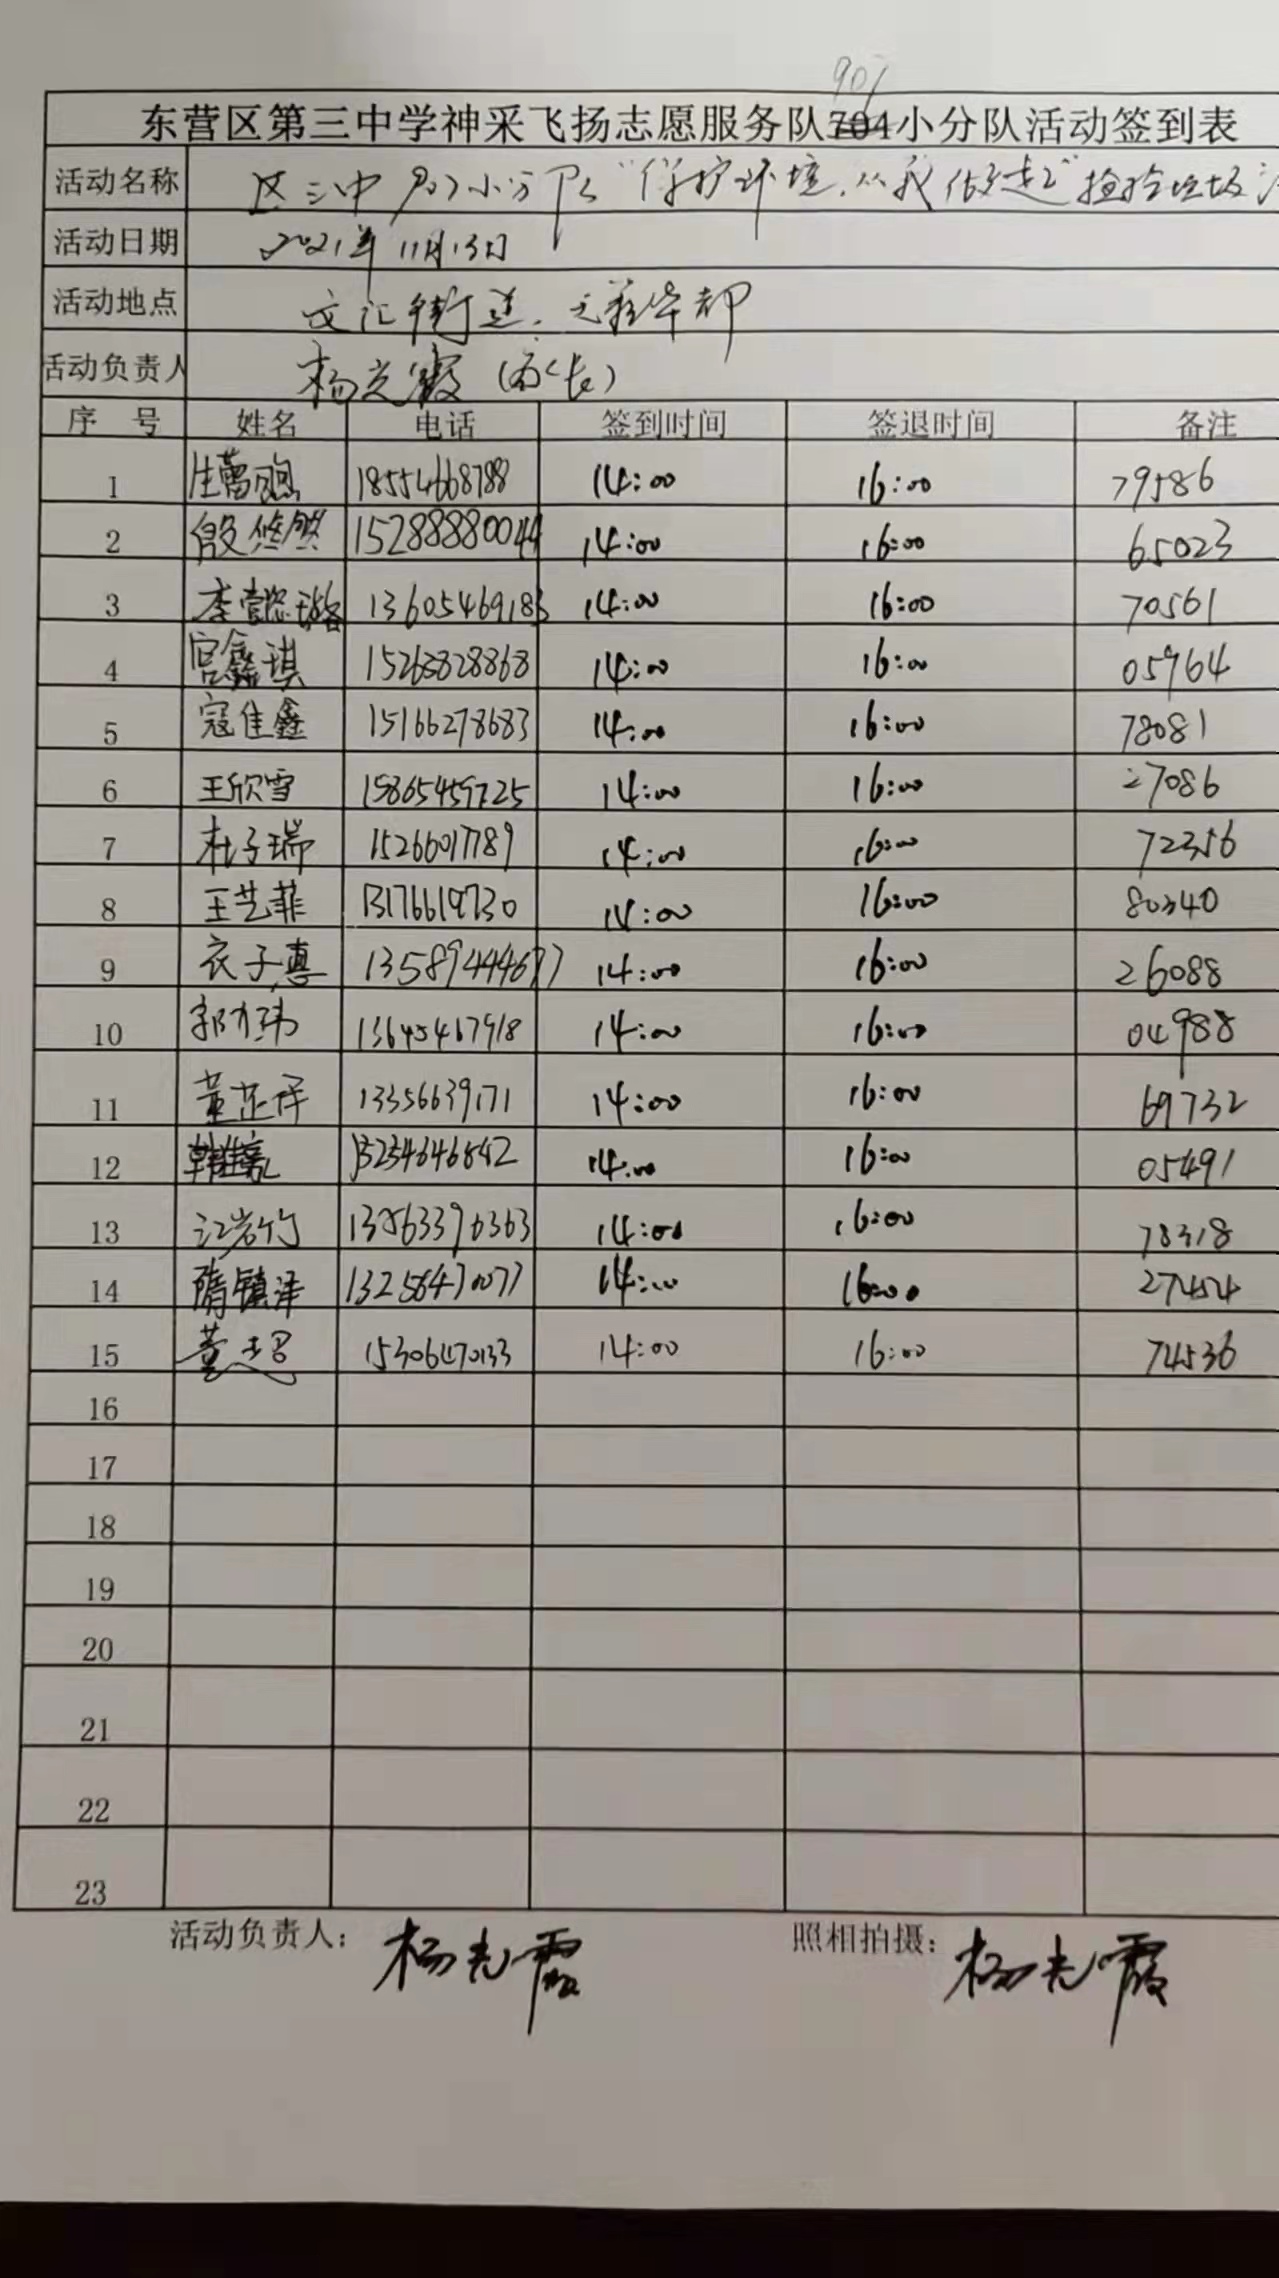 901
东营区第三中学神采飞扬志愿服务队704小分队活动签到表
活动名称 区三中901小分队"保护环境，从我做起"捡拾垃圾活
活动日期 2021年11月13日
活动地点 文汇街道，华都
活动负责人 杨光霞（家长）
序 号 姓名 电话 签到时间 签退时间 备注
1 18554668788 14:00 16:00 79586
2 殷悠然 15288880044 14:00 16:00 65023
3 李 13605469183 14:00 16:00 70561
4 宫鑫琪 15263828868 14:00 16:00 05964
5 寇佳鑫 15166278683 14:00 16:00 78081
6 王欣雪 15865459725 14:00 16:00 27086
7 杜子瑞 15266017789 14:00 16:00 72356
8 王艺菲 13176619730 14:00 16:00 80340
9 衣子惠 13589444677 14:00 16:00 26088
10 郭玮 13645467918 14:00 16:00 04988
11 董芷伃 13356639171 14:00 16:00 69732
12 韩 15254646842 14:00 16:00 05491
13 江岩竹 13863396363 14:00 16:00 78318
14 隋镇泽 13256470077 14:00 16:00 27454
15 董超 15306470133 14:00 16:00 74536
16
17
18
19
20
21
22
23
活动负责人：杨光霞 照相拍摄：杨光霞